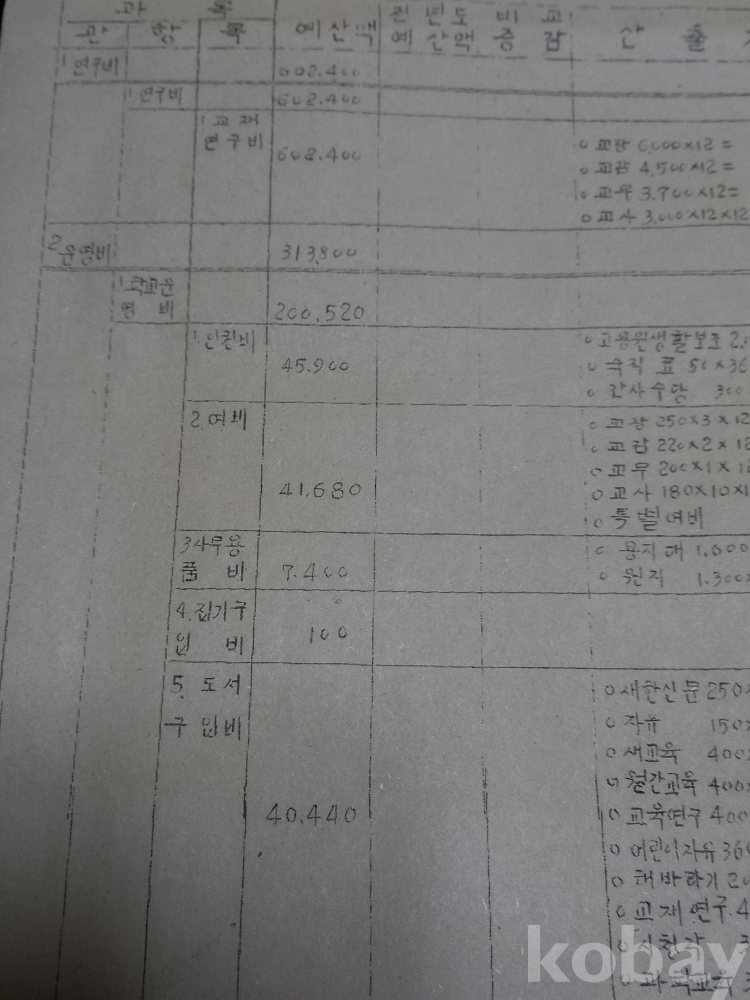 과 목
관 항 목 예산액 전년도예산액 비교증감 산출
1 연구비 602.400
1 연구비 602.400
1 교재 연구비 602.400
o 교장 6,000×12=
o 교감 4,500×12=
o 교무 3,700×12=
o 교사 3,000×12×12
2 운영비 313,800
영비 200,520
1. 인건비 45.900
o 고용원생활보조 2,
o 숙직표 50×36
o 간사수당 300
2. 여비 41.680
o 교장 250×3×12
o 교감 220×2×12
o 교무 200×1×1
o 교사 180×10×1
o 특별여비
3 사무용품비 7.400
o 용지대 1,600
o 원지 1.300×
4. 집기구입비 100
5. 도서구입비 40.440
o 새한신문 250×
o 자유 150×
o 새교육 400×
o 월간교육 400×
o 교육연구 400
o 어린이자유 360
o 해바라기
o 교재연구 4
o 과학교육
kobay